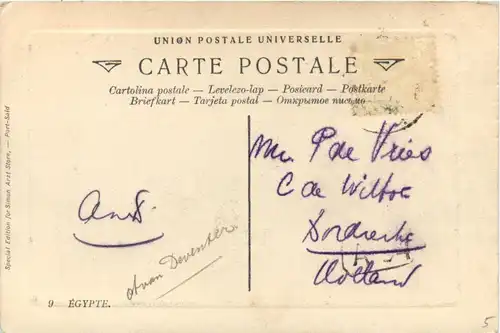 UNION POSTALE UNIVERSELLE
CARTE POSTALE
Cartolina postale — Levelezo-lap — Postcard — Postkarte
Briefkart — Tarjeta postal — Открытое письмо
Special Edition for Simon Arzt Store, — Port-Said
P de Vries
C de Witt
Dordrecht
Holland
van Deventer
9 ÉGYPTE.
5